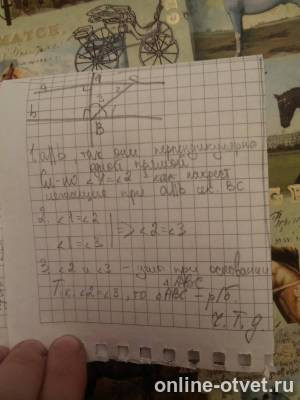 МАТСН
A
a
C
b
B
1. a||b, так они перпендикулярно
одной прямой
<1=<2 как накрест
лежащие при a||b и сек. BC
2. <1=<2
<1=<3 | => <2=<3
3. <2 и <3 – углы при основании
△ABC
Т.к. <2=<3, то △ABC – р/б.
ч.т.д
online-otvet.ru